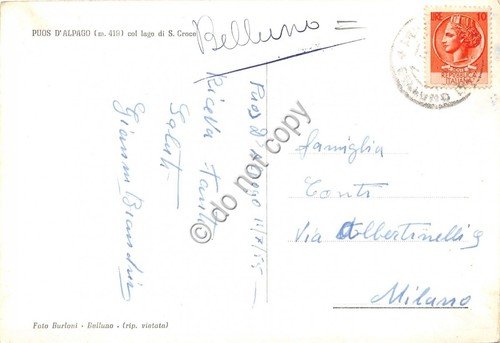 PUOS D'ALPAGO (m. 419) col lago di S. Croce
Belluno
LIRE 10
Puos d'Alpago 11/7/55
Riceva tanti
Saluti
Gianni
famiglia
Conti
Via Albertinelli 9
Milano
Foto Burloni - Belluno - (rip. vietata)
do not copy